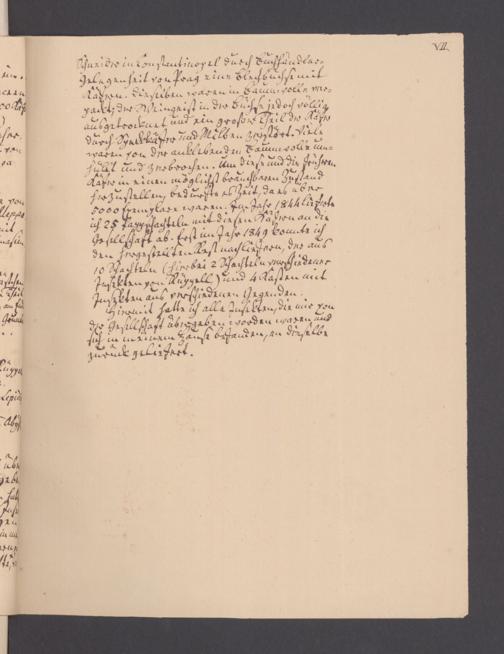 VII.
Schneider in Konstantinopel durch Buchhändler-
gelegenheit von Prag eine Blechbüchse mit
Käfern. Dieselben waren in Baumwolle ver-
packt, der Weingeist in der Büchse jedoch völlig
ausgetrocknet und ein großer Theil der Käfer
durch Speckkäfer und Milben zerstört. Viele
waren von der anklebenden Baumwolle um-
hüllt und zerbrochen. Um diese und die früheren
Käfer in einen möglichst brauchbaren Zustand
herzustellen, bedurfte es Zeit, da es über
5000 Exemplare waren. Im Jahr 1844 lieferte
ich 25 Pappschachteln mit diesen Käfern an die
Gesellschaft ab. Erst im Jahr 1849 konnte ich
den hergestellten Rest nachliefern, der aus
10 Schachteln (hierbei 2 Schachteln verschiedener
Insekten von Rüppell) und 4 Kästen mit
Insekten aus verschiedenen Gegenden.
Hiermit hatte ich alle Insekten, die mir von
der Gesellschaft übergeben worden waren, und
sich in meinem Hause befanden, an dieselbe
zurück geliefert.